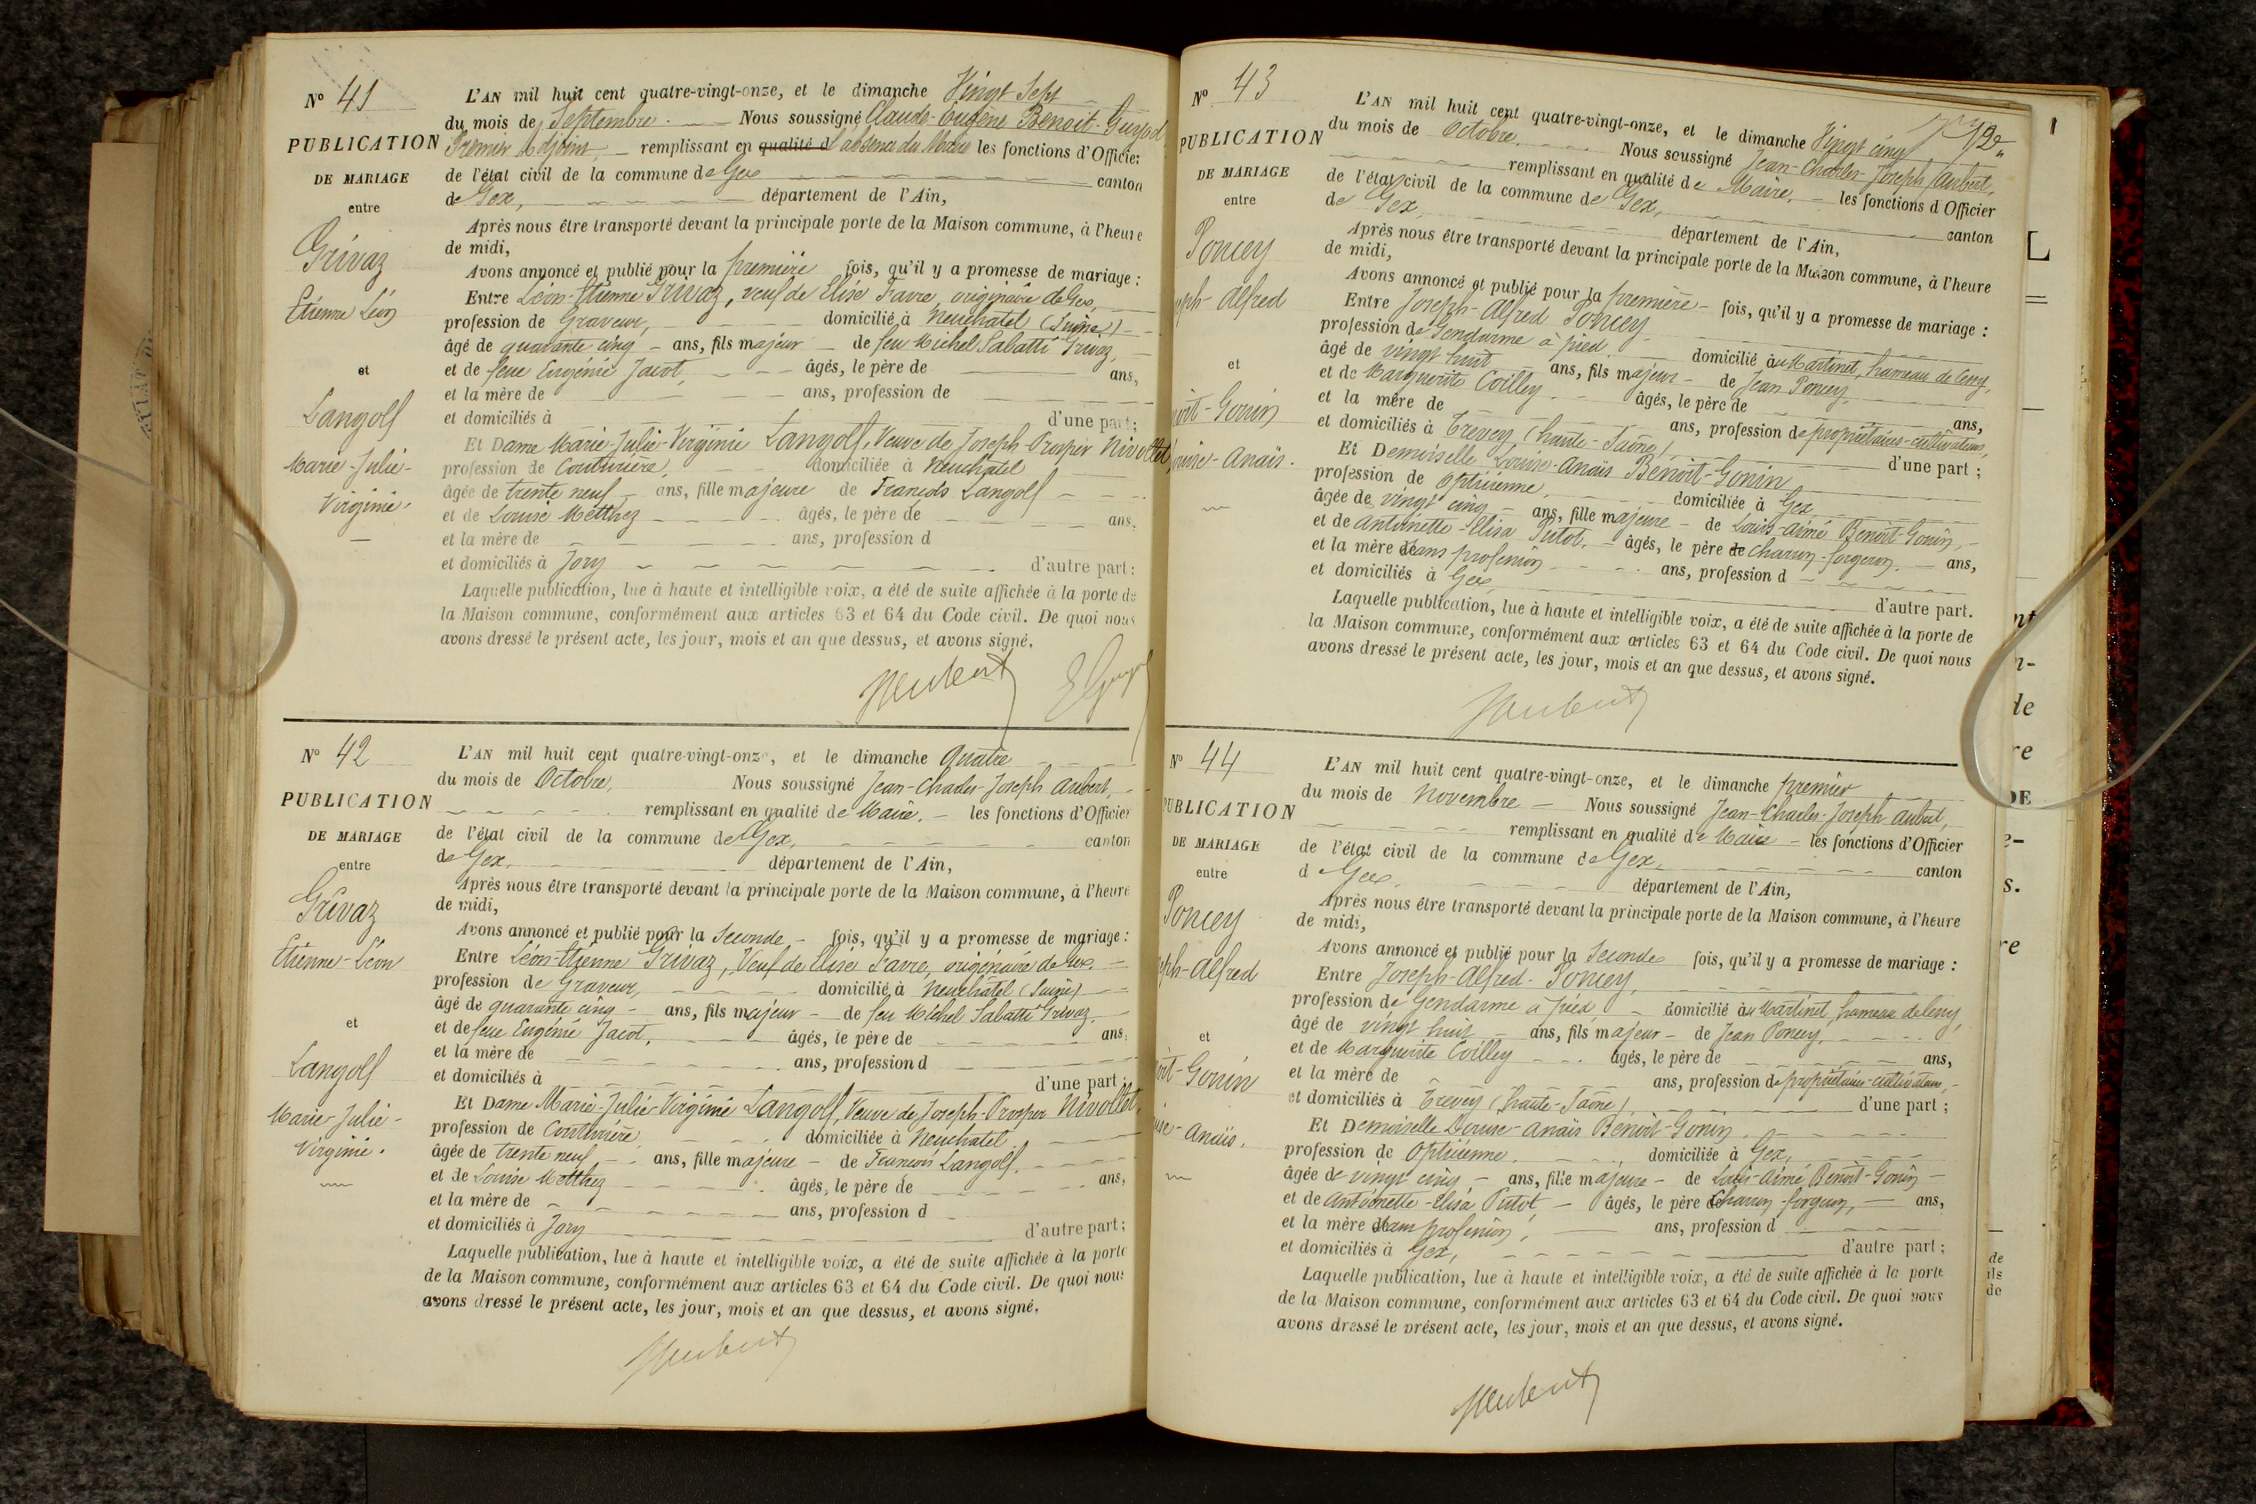 Nº 41
PUBLICATION
DE MARIAGE
entre
Grivaz
Etienne Léon
et
Langolf
Marie-Julie-
Virginie.
L'AN mil huit cent quatre-vingt-onze, et le dimanche Vingt Sept
du mois de Septembre. Nous soussigné Claude-Eugène Benoit-Guyod
Premier Adjoint, remplissant en qualité d l'absence du Maire les fonctions d'Officier
de l'état civil de la commune de Gex canton
de Gex, département de l'Ain,
Après nous être transporté devant la principale porte de la Maison commune, à l'heure
de midi,
Avons annoncé et publié pour la première fois, qu'il y a promesse de mariage :
Entre Léon-Etienne Grivaz, veuf de Elise Favre, originaire de Gex,
profession de Graveur, domicilié à Neuchatel (Suisse)
âgé de quarante cinq ans, fils majeur de feu Michel Sabatti Grivaz,
et de feue Eugénie Jacot, âgés, le père de ans,
et la mère de ans, profession de
et domiciliés à d'une part ;
Et Dame Marie-Julie-Virginie Langolf, Veuve de Joseph-Prosper Nivollet,
profession de Couturière, domiciliée à Neuchatel
âgée de trente neuf ans, fille majeure de François Langolf
et de Louise Metthez âgés, le père de ans,
et la mère de ans, profession d
et domiciliés à Jory d'autre part ;
Laquelle publication, lue à haute et intelligible voix, a été de suite affichée à la porte de
la Maison commune, conformément aux articles 63 et 64 du Code civil. De quoi nous
avons dressé le présent acte, les jour, mois et an que dessus, et avons signé.
Nº 42
PUBLICATION
DE MARIAGE
entre
Grivaz
Etienne-Léon
et
Langolf
Marie-Julie-
Virginie.
L'AN mil huit cent quatre-vingt-onze, et le dimanche Quatre
du mois de Octobre, Nous soussigné Jean-Charles-Joseph Aubert,
remplissant en qualité de Maire. les fonctions d'Officier
de l'état civil de la commune de Gex, canton
de Gex, département de l'Ain,
Après nous être transporté devant la principale porte de la Maison commune, à l'heure
de midi,
Avons annoncé et publié pour la Seconde fois, qu'il y a promesse de mariage :
Entre Léon-Etienne Grivaz, Veuf de Elise Favre, originaire de Gex.
profession de Graveur, domicilié à Neuchâtel (Suisse)
âgé de quarante cinq ans, fils majeur de feu Michel Sabatti Grivaz.
et de feue Eugénie Jacot, âgés, le père de ans,
et la mère de ans, profession d
et domiciliés à d'une part ;
Et Dame Marie-Julie-Virginie Langolf, Veuve de Joseph-Prosper Nivollet,
profession de Couturière, domiciliée à Neuchatel
âgée de trente neuf ans, fille majeure de François Langolf.
et de Louise Metthez âgés, le père de ans,
et la mère de ans, profession d
et domiciliés à Jory d'autre part ;
Laquelle publication, lue à haute et intelligible voix, a été de suite affichée à la porte
de la Maison commune, conformément aux articles 63 et 64 du Code civil. De quoi nous
avons dressé le présent acte, les jour, mois et an que dessus, et avons signé.
Nº 43
PUBLICATION
DE MARIAGE
entre
Poncey
eph-Alfred
et
oit-Gonin
ouise-Anaïs.
L'AN mil huit cent quatre-vingt-onze, et le dimanche Vingt cinq
du mois de Octobre, Nous soussigné Jean-Charles-Joseph Aubert,
remplissant en qualité de Maire. les fonctions d'Officier
de l'état civil de la commune de Gex, canton
de Gex, département de l'Ain,
Après nous être transporté devant la principale porte de la Maison commune, à l'heure
de midi,
Avons annoncé et publié pour la première fois, qu'il y a promesse de mariage :
Entre Joseph-Alfred Poncey
profession de Gendarme à pied domicilié à u Martinet, hameau de Cessy,
âgé de vingt huit ans, fils majeur de Jean Poncey,
et de Marguerite Coilley âgés, le père de ans,
et la mère de ans, profession de propriétaires-cultivateurs,
et domiciliés à Trevey (haute-Saône) d'une part ;
Et Demoiselle Louise-Anaïs Benoit-Gonin
profession de Opticienne domiciliée à Gex
âgée de vingt cinq ans, fille majeure de Louis-Aimé Benoit-Gonin,
et de Antoinette-Elisa Putot. âgés, le père de charron-forgeron. ans,
et la mère sans profession ans, profession d
et domiciliés à Gex d'autre part.
Laquelle publication, lue à haute et intelligible voix, a été de suite affichée à la porte de
la Maison commune, conformément aux articles 63 et 64 du Code civil. De quoi nous
avons dressé le présent acte, les jour, mois et an que dessus, et avons signé.
Nº 44
PUBLICATION
DE MARIAGE
entre
Poncey
eph-Alfred
et
oit-Gonin
uise-Anaïs.
L'AN mil huit cent quatre-vingt-onze, et le dimanche premier
du mois de Novembre Nous soussigné Jean-Charles-Joseph Aubert,
remplissant en qualité de Maire les fonctions d'Officier
de l'état civil de la commune de Gex, canton
d Gex. département de l'Ain,
Après nous être transporté devant la principale porte de la Maison commune, à l'heure
de midi,
Avons annoncé et publié pour la Seconde fois, qu'il y a promesse de mariage :
Entre Joseph-Alfred-Poncey,
profession de Gendarme à pied domicilié au Martinet, hameau de Cessy,
âgé de vingt huit ans, fils majeur de Jean Poncey,
et de Marguerite Coilley âgés, le père de ans,
et la mère de ans, profession de propriétaires-cultivateurs,
et domiciliés à Trevey (haute-Saône) d'une part ;
Et Demoiselle Louise-Anaïs Benoit-Gonin
profession de Opticienne domiciliée à Gex,
âgée de vingt cinq ans, fille majeure de Louis-Aimé Benoit-Gonin
et de Antoinette-Elisa Putot âgés, le père charron forgeron, ans,
et la mère sans profession, ans, profession d
et domiciliés à Gex, d'autre part ;
Laquelle publication, lue à haute et intelligible voix, a été de suite affichée à la porte
de la Maison commune, conformément aux articles 63 et 64 du Code civil. De quoi nous
avons dressé le présent acte, les jour, mois et an que dessus, et avons signé.